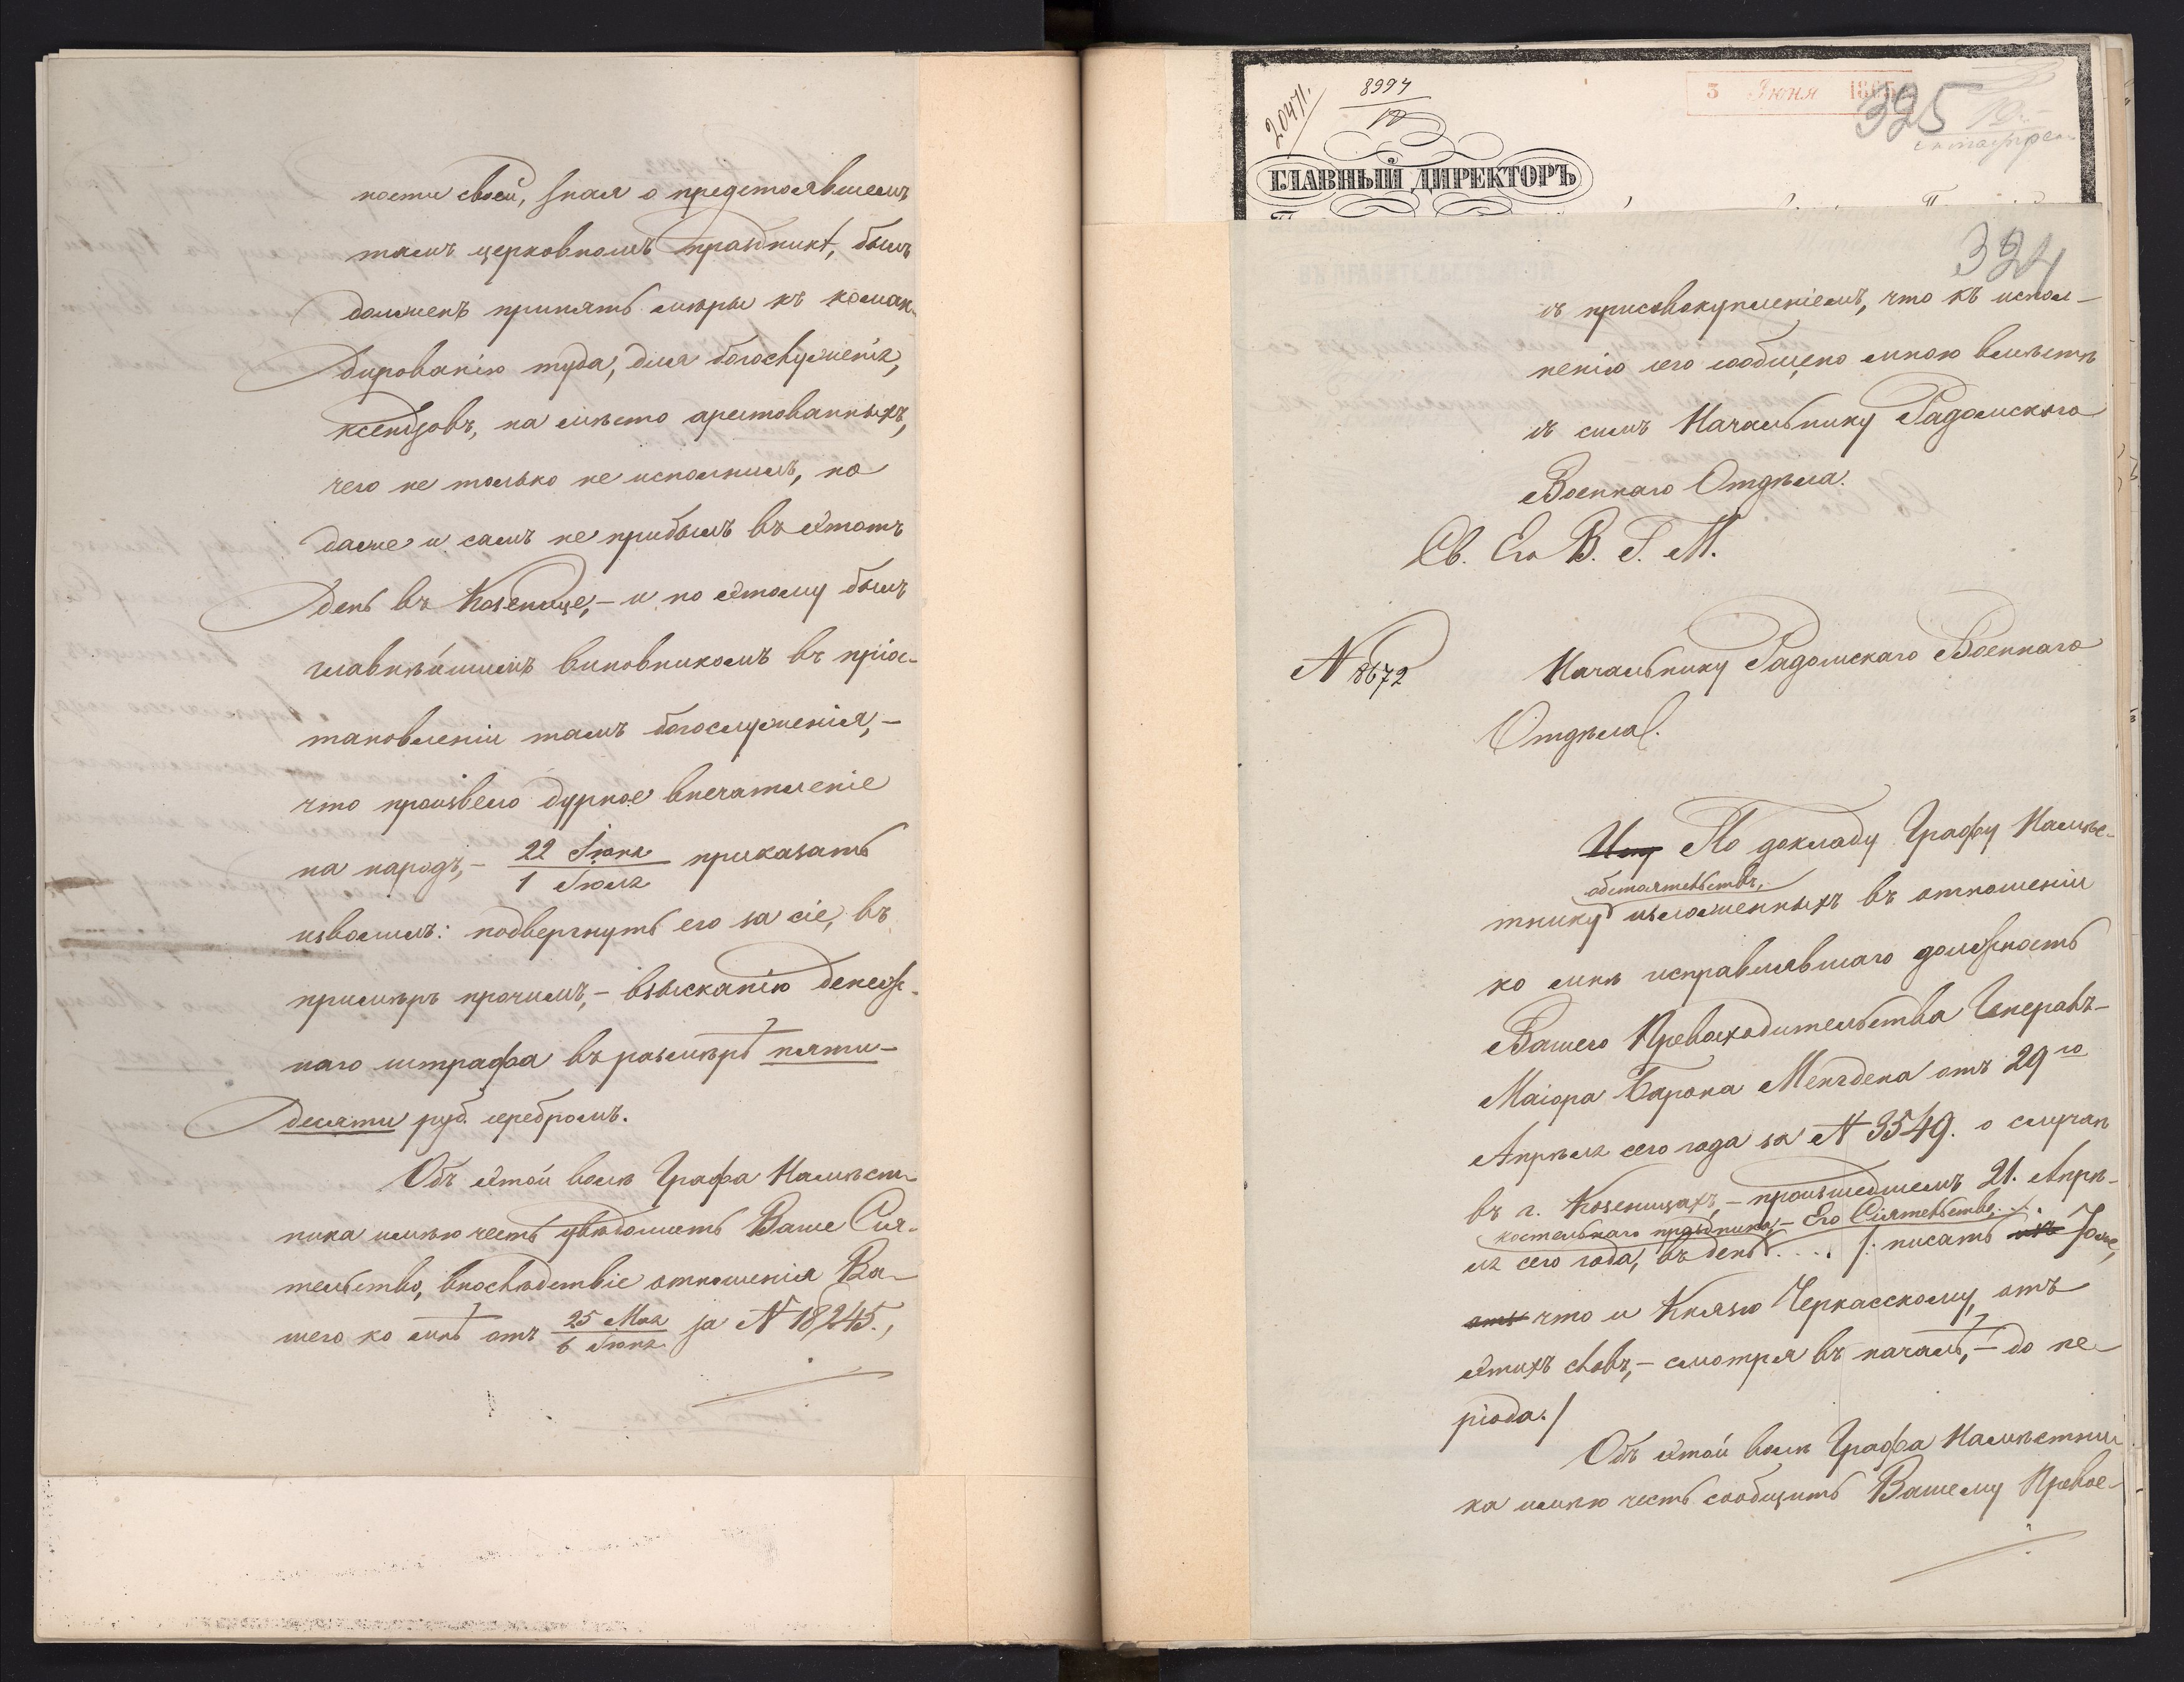 ности своей, зная о предстоявшемъ
тамъ церковномъ праздникѣ, былъ
долженъ принять мѣры къ коман-
дированію туда, для богослуженія,
ксендзовъ, на мѣсто арестованныхъ,
чего не только не исполнилъ, но
даже и самъ не прибылъ въ этотъ
день въ Козеницe, – и по этому былъ
главнѣйшимъ виновникомъ въ пріос-
тановленіи тамъ богослуженія, –
что произвело дурное впечатленіе
на народъ, – 22 Іюня / 1 Іюля приказать
изволилъ: подвергнуть его за сіе, въ
примѣръ прочимъ, – взысканію денеж-
наго штрафа въ размѣрѣ пяти-
десяти руб. серебромъ.
Объ этой волѣ Графа Намѣст-
ника имѣю честь увѣдомить Ваше Сія-
тельство, впослѣдствіе отношенія Ва-
шего ко мнѣ отъ 25 Мая / 6 Іюня за № 18245.,
20471.
8994
3 Іюня 1865
325
ГЛАВНЫЙ ДИРЕКТОРЪ
324
съ присовокупленіемъ, что къ испол-
ненію сего сообщено мною вмѣстѣ
съ симъ Начальнику Радомскаго
Военнаго Отдѣла.
Св. Его В. Г. М.
№ 8672
Начальнику Радомскаго Военнаго
Отдѣла.
По докладу Графу Намѣс-
обстоятельствъ,
тнику изложенныхъ въ отношеніи
ко мнѣ исправлявшаго должность
Вашего Превосходительства Генералъ-
Маіора Барона Менгдена отъ 29го
Апрѣля сего года за № 3549. о случаѣ
въ г. Козеницахъ, – происшедшемъ 21. Апрѣ-
костельнаго праздника, – Его Сіятельство, . . .
ля сего года, въ день . . . . /: писать тоже,
что и Князю Черкасскому, отъ
этихъ словъ, – смотря въ началѣ, – до пе-
ріода. /
Объ этой волѣ Графа Намѣстни-
ка имѣю честь сообщить Вашему Превос-